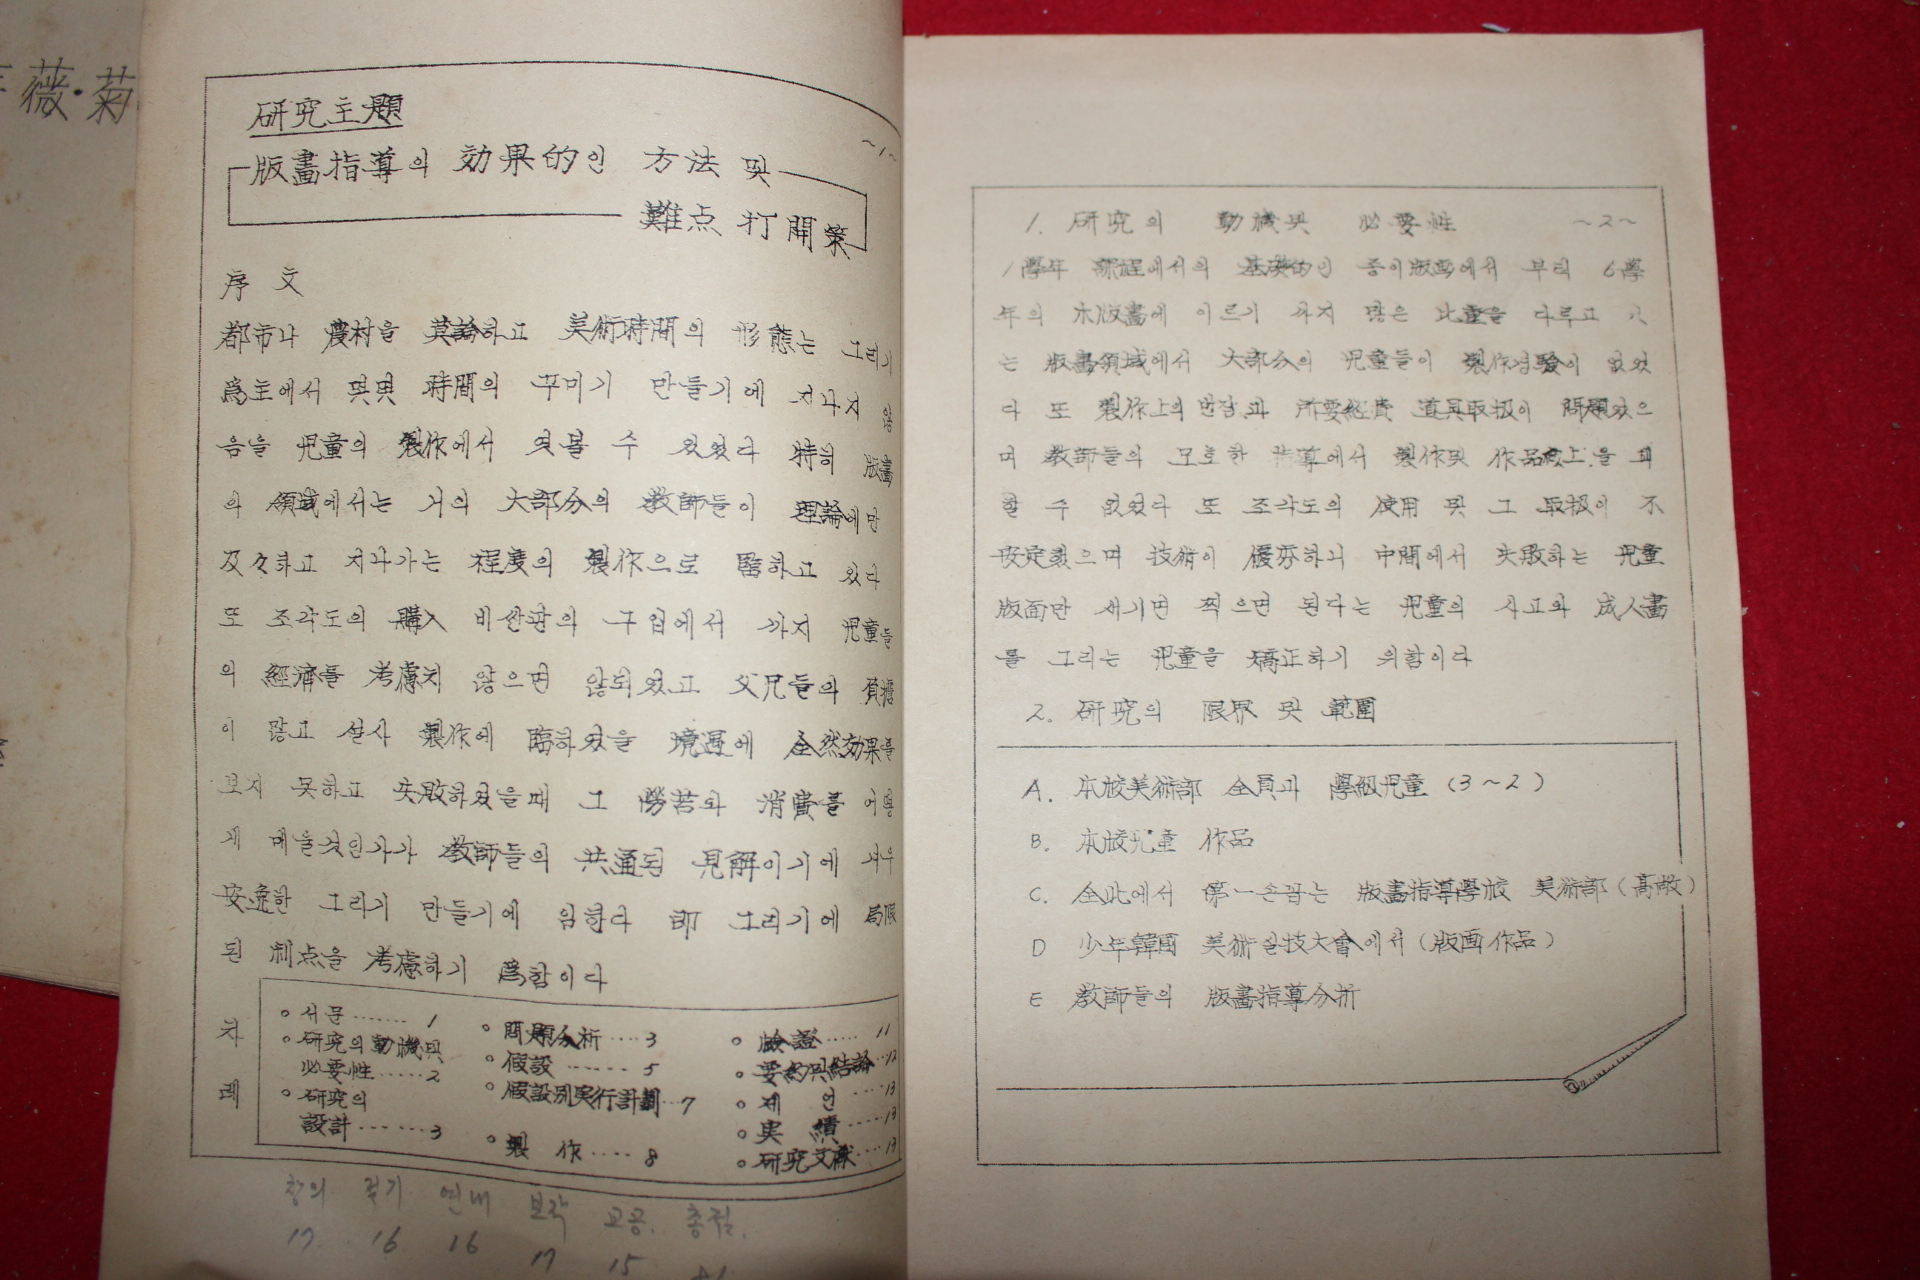 薇·菊
研究主題
~1~
版畵指導의 効果的인 方法 및
難点 打開策
序文
都市나 農村을 莫論하고 美術時間의 形態는 그리기
爲主에서 몇몇 時間의 꾸미기 만들기에 지나지 않
음을 児童의 製作에서 엿볼 수 있었다 特히 版畵
의 領域에서는 거의 大部分의 敎師들이 理論에만
及々하고 지나가는 程度의 製作으로 臨하고 있다
또 조각도의 購入 비싼판의 구입에서 까지 児童들
의 經濟를 考慮치 않으면 않되었고 父兄들의 負担
이 많고 설사 製作에 臨하였을 境遇에 全然効果를
보지 못하고 失敗하였을때 그 勞苦와 消費를 어떻
게 메울것인가가 敎師들의 共通된 見解이기에 겨우
安逸한 그리기 만들기에 임한다 即 그리기에 局限
된 制点을 考慮하기 爲함이다
차례
○ 서문 ······· 1
○ 研究의 動機및
必要性 ····· 2
○ 研究의
設計 ······· 3
○ 問題分析 ···· 3
○ 假設 ······· 5
○ 假設別実行計劃 ··· 7
○ 製作 ···· 8
○ 驗證 ····· 11
○ 要約및結論 ··· 12
○ 제언 ···· 13
○ 実績 ···· 13
○ 研究文献 ···· 13
창의 적기 연내 보작 교공. 총점.
17 16 16 17 15
1. 研究의 動機및 必要性 ~2~
1學年 課程에서의 基礎的인 종이版畵에서 부터 6學
年의 木版畵에 이르기 까지 많은 比重을 다루고 있
는 版畵領域에서 大部分의 児童들이 製作경驗이 없었
다 또 製作上의 번잡과 所要經費 道具取扱이 問題였으
며 敎師들의 모호한 指導에서 製作및 作品向上을 꾀
할 수 없었다 또 조각도의 使用 및 그 取扱이 不
安定했으며 技術이 優秀하니 中間에서 失敗하는 児童
版面만 새기면 찍으면 된다는 児童의 사고와 成人畵
를 그리는 児童을 矯正하기 위함이다
2. 研究의 限界 및 範圍
A. 本校美術部 全員과 學級児童 (3~2)
B. 本校児童 作品
C. 全北에서 第一손꼽는 版畵指導學校 美術部 (高敞)
D 少年韓國 美術실技大會에서 (版画作品)
E 敎師들의 版畵指導分析